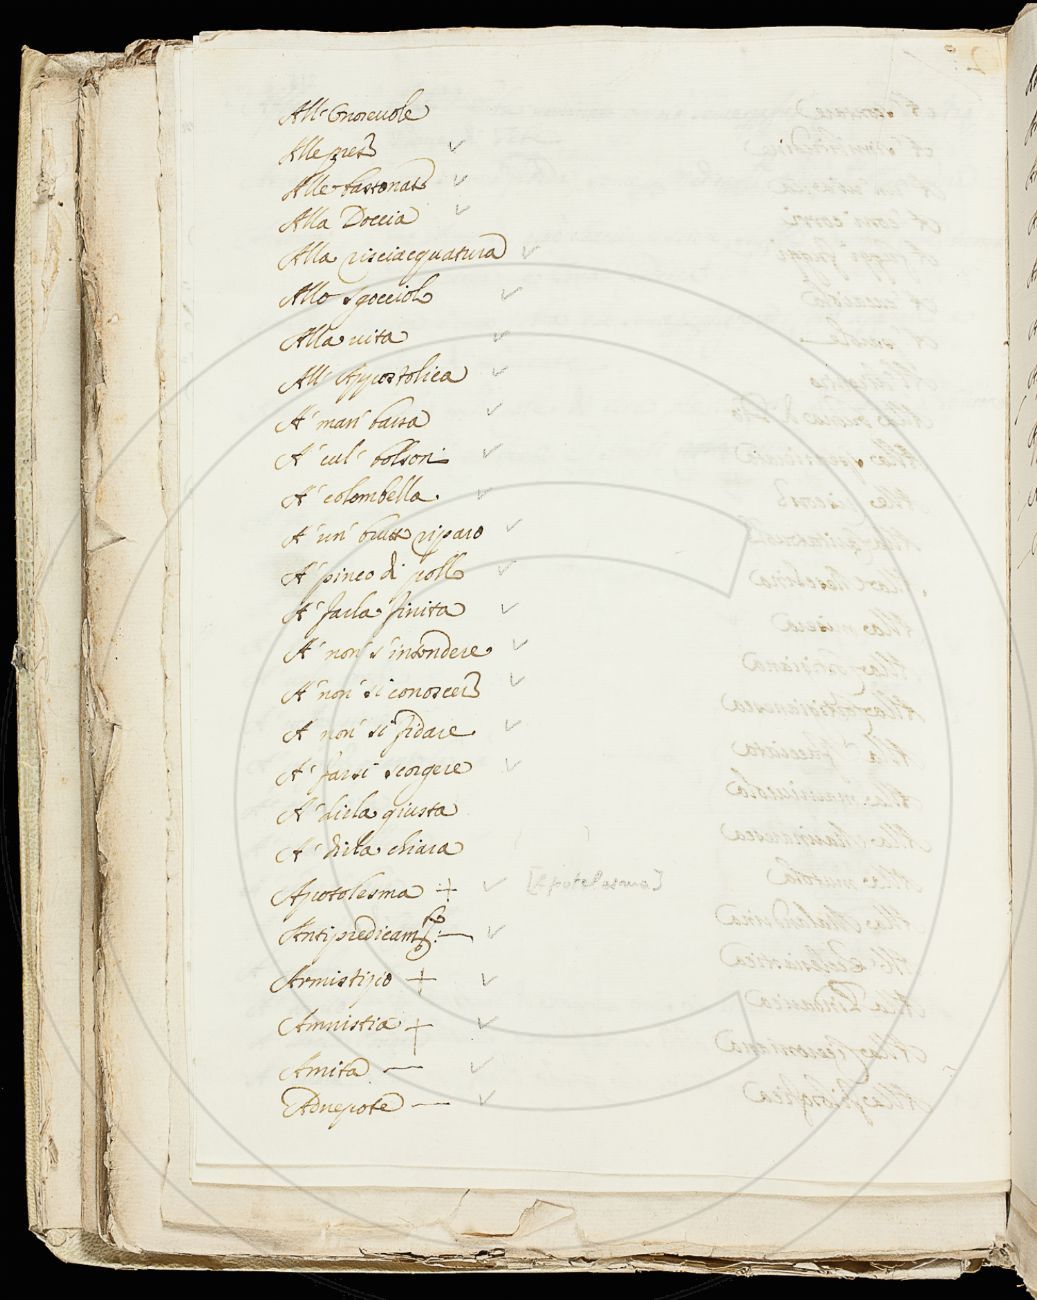 All' Onoreuole
Alle prese
Alle bastonate
Alla Doccia
Alla risciacquatura
Allo sgocciolo
Alla uita
All' Appostolica
A' man' bassa
A' cul' bolzoni
A' colombella.
A' un' brutto riparo
A' pinco di pollo
A' farla finita
A' non' s'intendere
A' non' si conoscere
A' non' si fidare
A' farsi scorgere
A' dirla giusta
A' dirla chiara
Apotolesma + [Apotelesma]
Antipredicam:to —
Armistizio +
Amnistia +
Amita —
Adnepote —